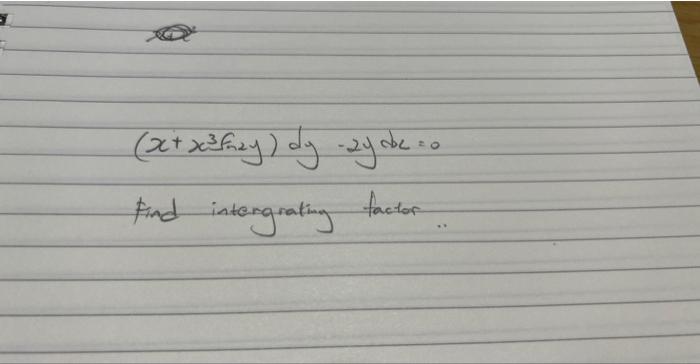 (x + x³ sin2y) dy - 2y dx = 0
Find intergrating factor ..